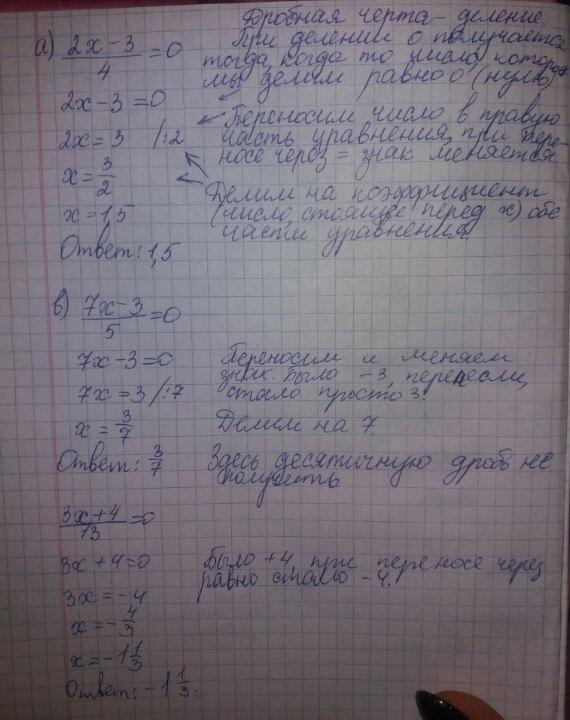 Дробная черта – деление.
а) (2x-3)/4 = 0 При делении 0 получается
тогда, когда то число, которое
мы делим равно 0 (нулю)
2x-3=0
Переносим число в правую
2x=3 /:2 часть уравнения, при пере-
носе через = знак меняется
x=3/2
Делим на коэффициент
x=1,5 (число, стоящее перед x) обе
части уравнения.
Ответ: 1,5
в) (7x-3)/5 = 0
7x-3=0 Переносим и меняем
знак. Было -3, перенесли,
7x=3 /:7 стало просто 3.
x=3/7 Делим на 7
Ответ: 3/7 Здесь десятичную дробь не
получить
(3x+4)/13 = 0
3x+4=0 Было +4, при переносе через
равно стало -4.
3x=-4
x=-4/3
x=-1 1/3
Ответ: -1 1/3.